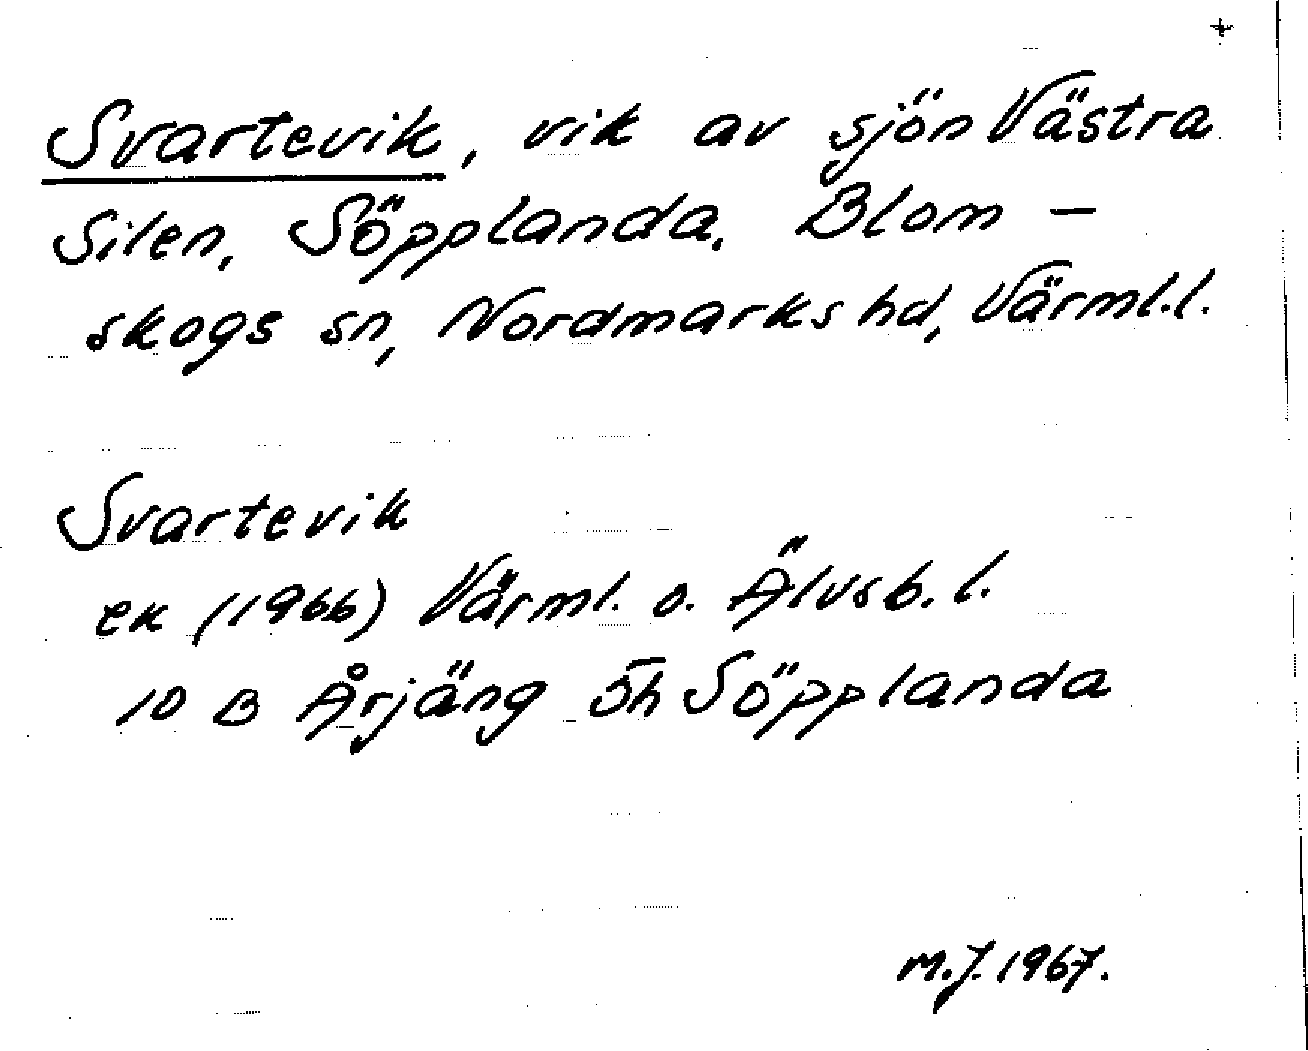 +
Svartevik, vik av sjön Västra
Silen, Söpplanda, Blom-
skogs sn, Nordmarks hd, Värml.l.
Svartevik
ek (1966) Värml. o. Älvsb. l.
10 B Årjäng 5h Söpplanda
M.J. 1967.